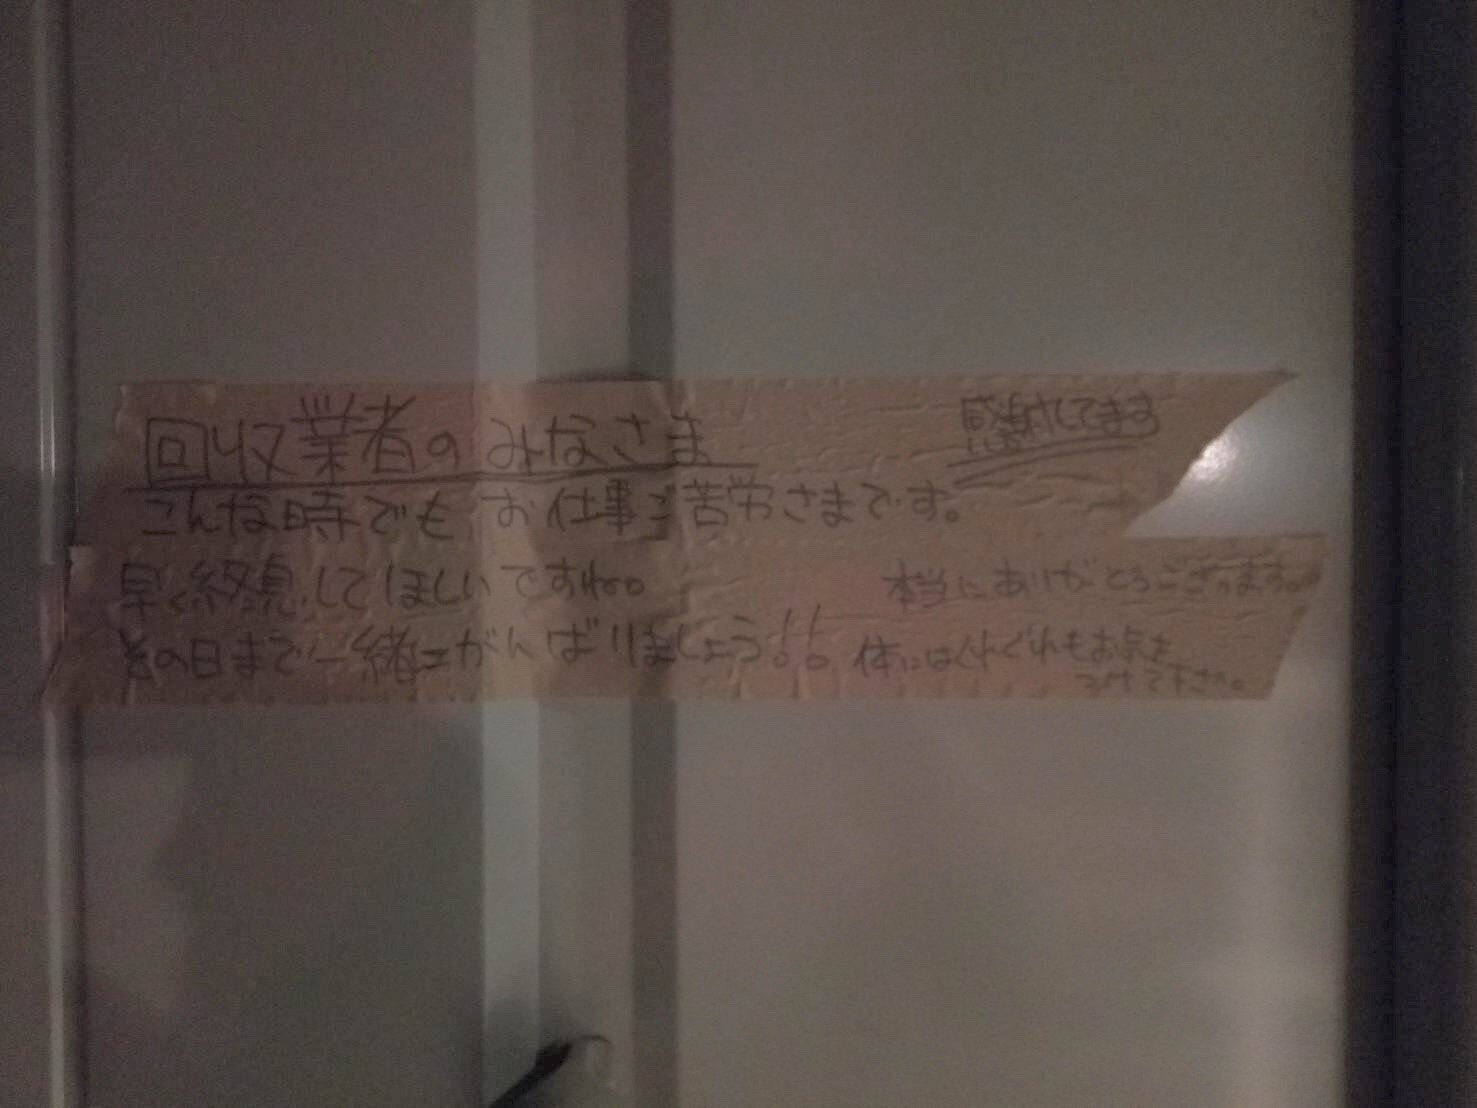 回収業者のみなさま
感謝してます
こんな時でもお仕事ご苦労さまです。
早く終息してほしいですね。
本当にありがとうございます。
その日まで一緒にがんばりましょう!!
体にはくれぐれもお気を
つけて下さい。